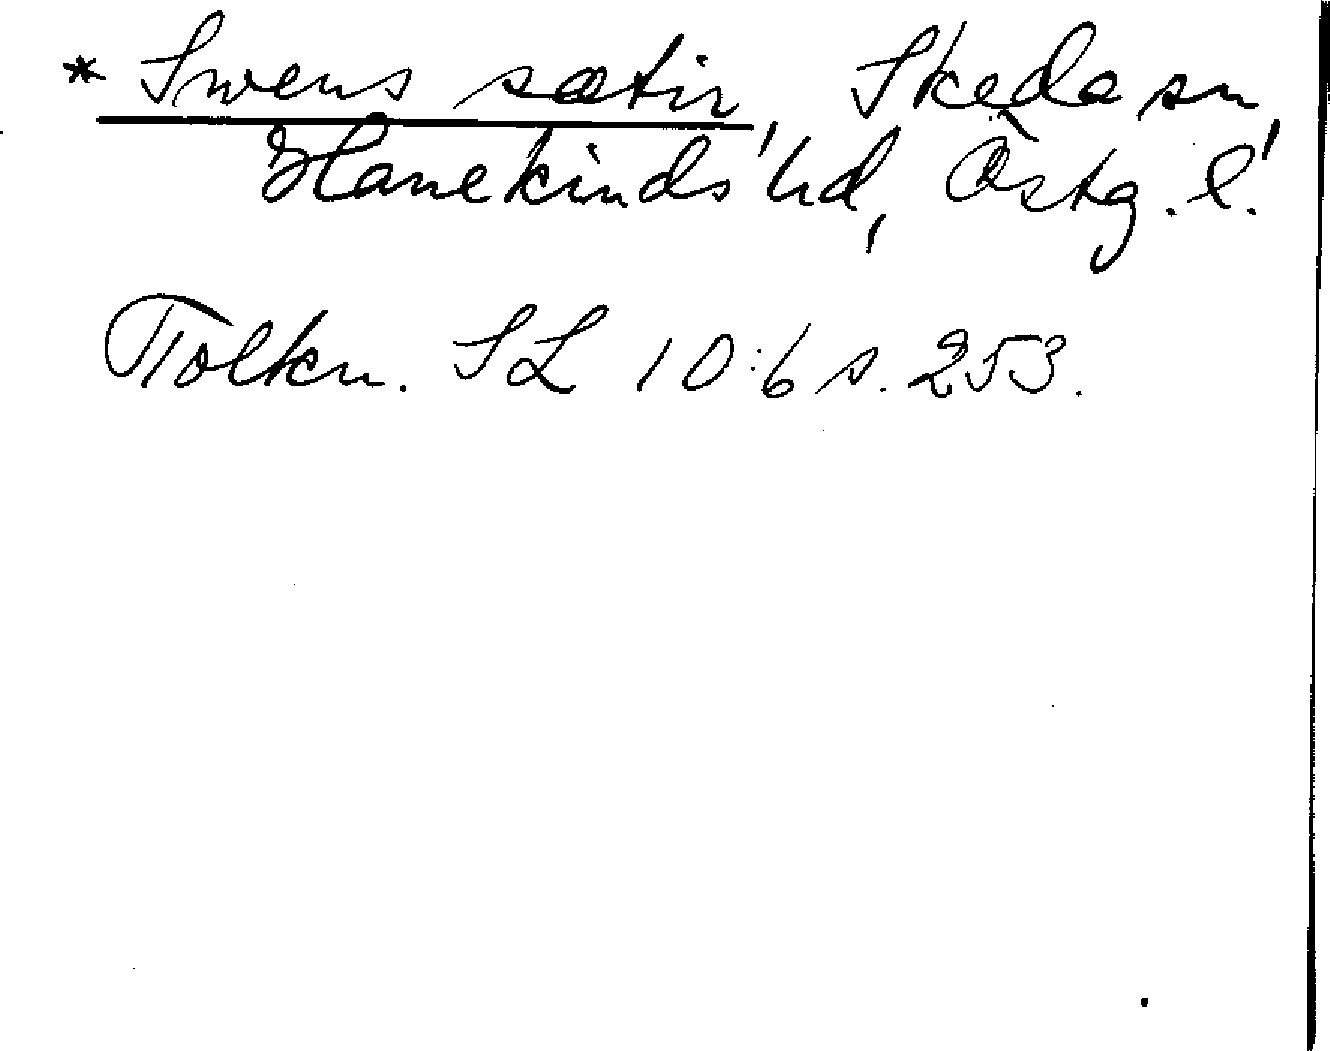 * Swens sætir, Skeda sn,
Hanekinds hd, Östg. l.
Tolkn. SL 10:6 s. 253.